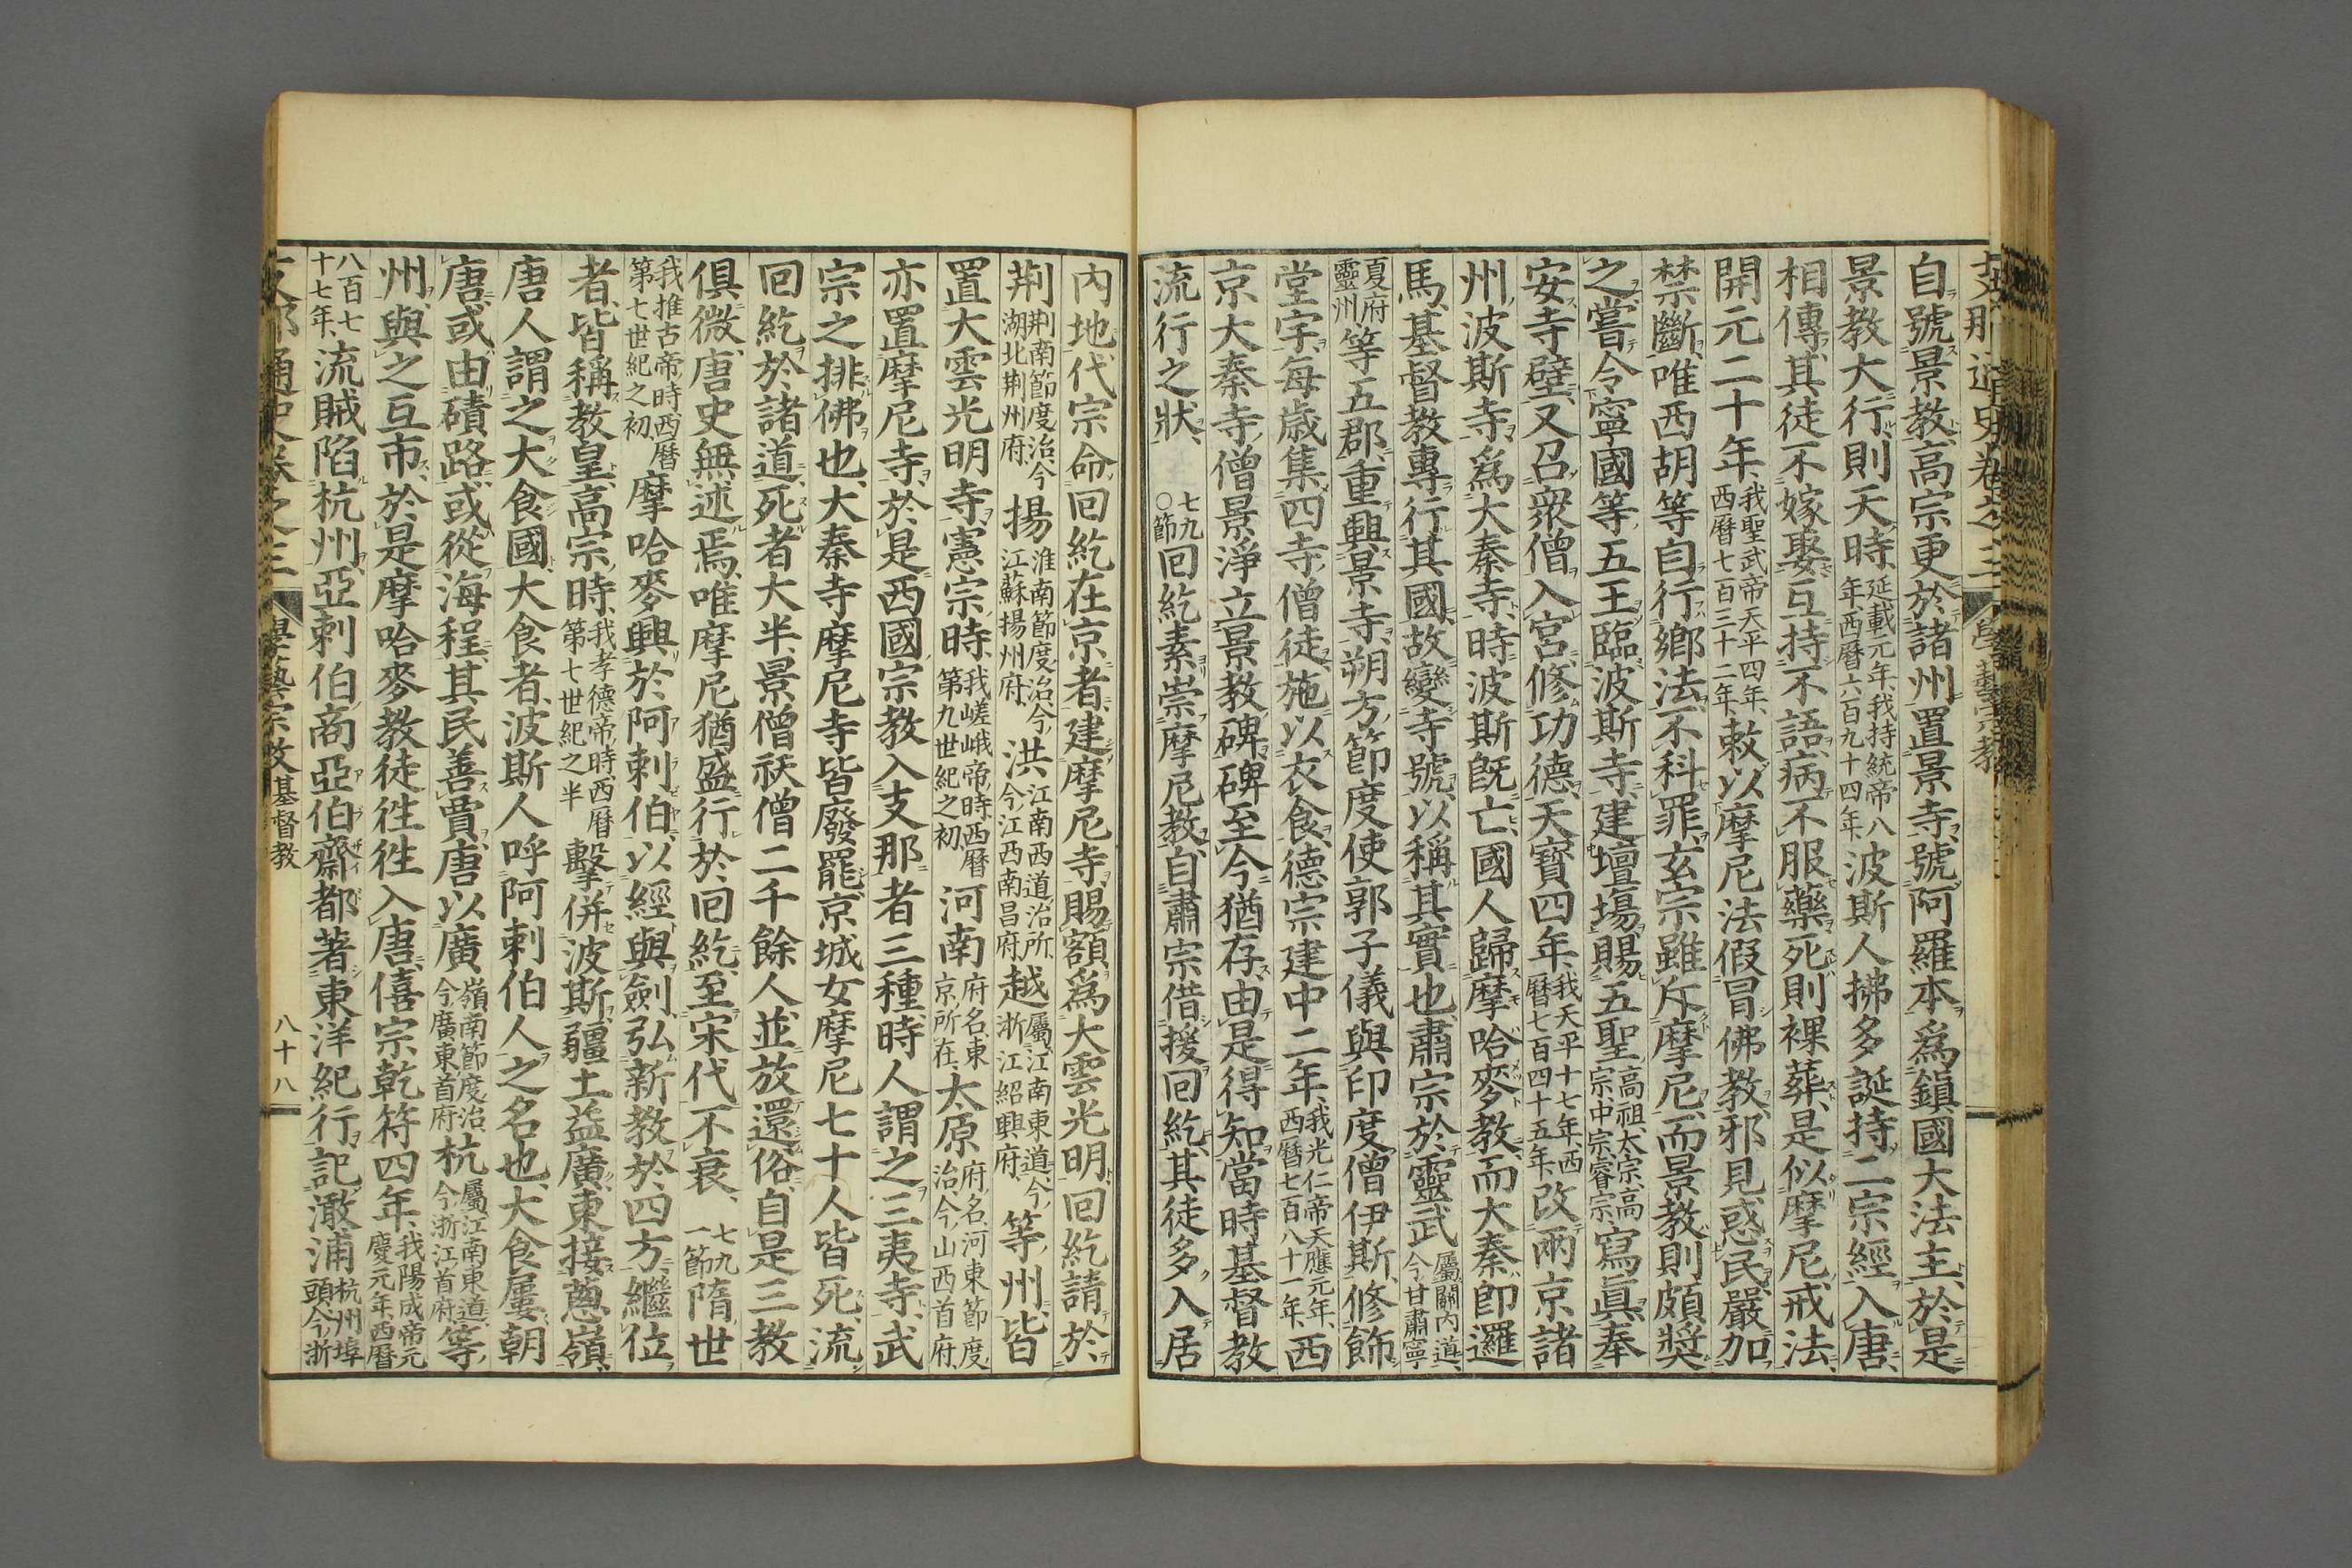 支那通史卷之三 學藝宗教
自號景教、高宗更於諸州置景寺、號阿羅本爲鎮國大法主、於是
景教大行、則天時、延載元年、我持統帝八年、西曆六百九十四年、波斯人拂多誕持二宗經入唐、
相傳、其徒不嫁娶、互持不語、病不服藥、死則裸葬、是似摩尼戒法、
開元二十年、我聖武帝天平四年、西曆七百三十二年、敕以摩尼法假冒佛教、邪見惑民、嚴加
禁斷、唯西胡等自行鄉法、不科罪、玄宗雖斥摩尼、而景教則頗奬
之、嘗令寧國等五王臨波斯寺、建壇場、賜五聖高祖、太宗、高宗、中宗、睿宗、寫眞、奉
安寺壁、又召衆僧入宮修功德、天寶四年、我天平十七年、西曆七百四十五年、改兩京諸
州波斯寺、爲大秦寺、時波斯旣亡、國人歸摩哈麥教、而大秦卽邏
馬、基督教專行其國、故變寺號、以稱其實也、肅宗於靈武屬關內道、今甘肅寧
夏府靈州等五郡、重興景寺、朔方節度使郭子儀與印度僧伊斯、修飾
堂宇、每歲集四寺僧徒、施以衣食、德宗建中二年、我光仁帝天應元年、西曆七百八十一年、西
京大秦寺僧景淨立景教碑、碑至今猶存、由是得知當時基督教
流行之狀、七九〇節回紇素崇摩尼教、自肅宗借援回紇、其徒多入居
內地、代宗命回紇在京者、建摩尼寺、賜額爲大雲光明、回紇請於
荊荊南節度治、今湖北荊州府、揚淮南節度治、今江蘇揚州府、洪江南西道治所、今江西南昌府、越屬江南東道、今浙江紹興府、等州、皆
置大雲光明寺、憲宗時、我嵯峨帝時、西曆第九世紀之初、河南府名、東京所在、太原府名、河東節度治、今山西首府、
亦置摩尼寺、於是西國宗教入支那者三種、時人謂之三夷寺、武
宗之排佛也、大秦寺摩尼寺皆廢罷、京城女摩尼七十人皆死、流
回紇於諸道、死者大半、景僧祆僧二千餘人、並放還俗、自是三教
俱微、唐史無述焉、唯摩尼猶盛行於回紇、至宋代不衰、七九一節隋世
我推古帝時、西曆第七世紀之初、摩哈麥興於阿剌伯、以經與劍、弘新教於四方、繼位
者、皆稱教皇、高宗時、我孝德帝時、西曆第七世紀之半、擊併波斯、疆土益廣、東接蔥嶺、
唐人謂之大食國、大食者、波斯人呼阿剌伯人之名也、大食屢朝
唐、或由磧路、或從海程、其民善賈、唐以廣嶺南節度治、今廣東首府、杭屬江南東道、今浙江首府、等
州、與之互市、於是摩哈麥教徒徃徃入唐、僖宗乾符四年、我陽成帝元慶元年、西曆
八百七十七年、流賊陷杭州、亞剌伯商亞伯齋都著東洋紀行、記澉浦杭州埠頭、今浙
支那通史卷之三 學藝宗教 基督教 八十八